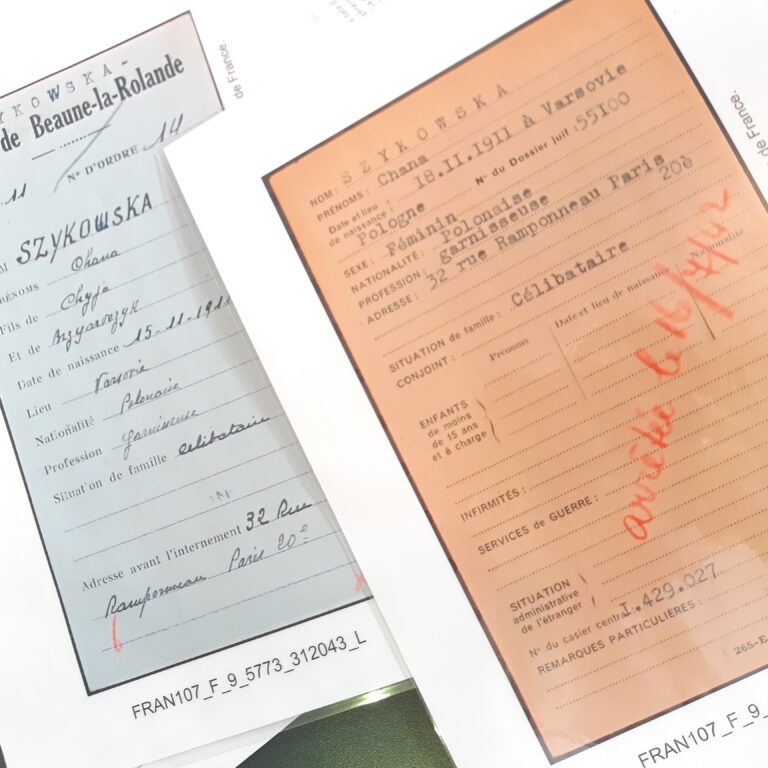 YKOWSKA-
de Beaune-la-Rolande
11
N° D'ORDRE 14
SZYKOWSKA
Chana
Fils de Chyja
Et de
Date de naissance 15-11-1911
Lieu Varsovie
Nationalité Polonaise
Profession Garnisseuse
Situation de famille celibataire
Adresse avant l'internement 32 Rue
Ramponneau Paris 20e
FRAN107_F_9_5773_312043_L
de France
NOM: SZYKOWSKA
PRÉNOMS: Chana
Date et lieu de naissance: 18.II.1911 à Varsovie
Pologne
N° du Dossier juif: 55100
SEXE: Féminin
NATIONALITÉ: Polonaise
PROFESSION: garnisseuse
ADRESSE: 32 rue Ramponneau Paris
20è
SITUATION de famille: Célibataire
CONJOINT:
Prénoms
Date et lieu de naissance
Nationalité
ENFANTS
de moins
de 15 ans
et à charge
arrêtée le 16/7/42
INFIRMITÉS:
SERVICES de GUERRE:
SITUATION
administrative
de l'étranger
N° du casier central I.429.027
REMARQUES PARTICULIÈRES:
265-E
FRAN107_F_9_
de France.